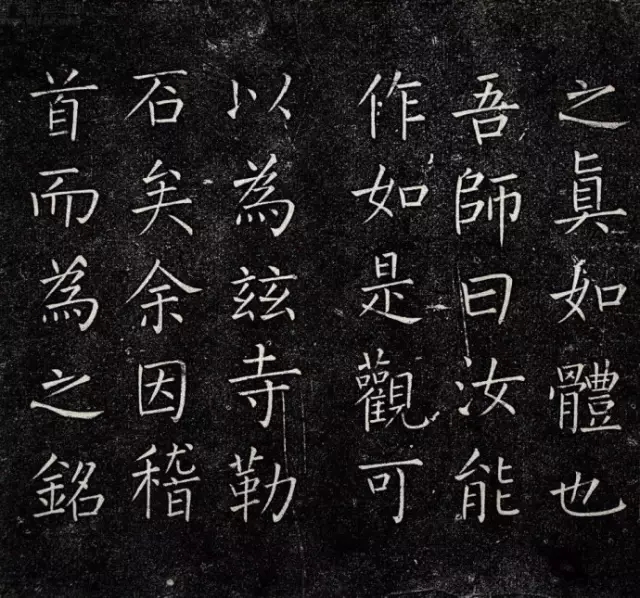 之眞如體也
吾師曰汝能
作如是觀可
以為茲寺勒
石矣余因稽
首而為之銘